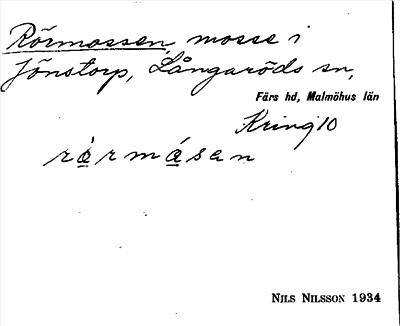 Rörmossen, mosse i
Jönstorp, Långaröds sn,
Färs hd, Malmöhus län
Kring 10
rὰ̲rmά̲sen
NILS NILSSON 1934